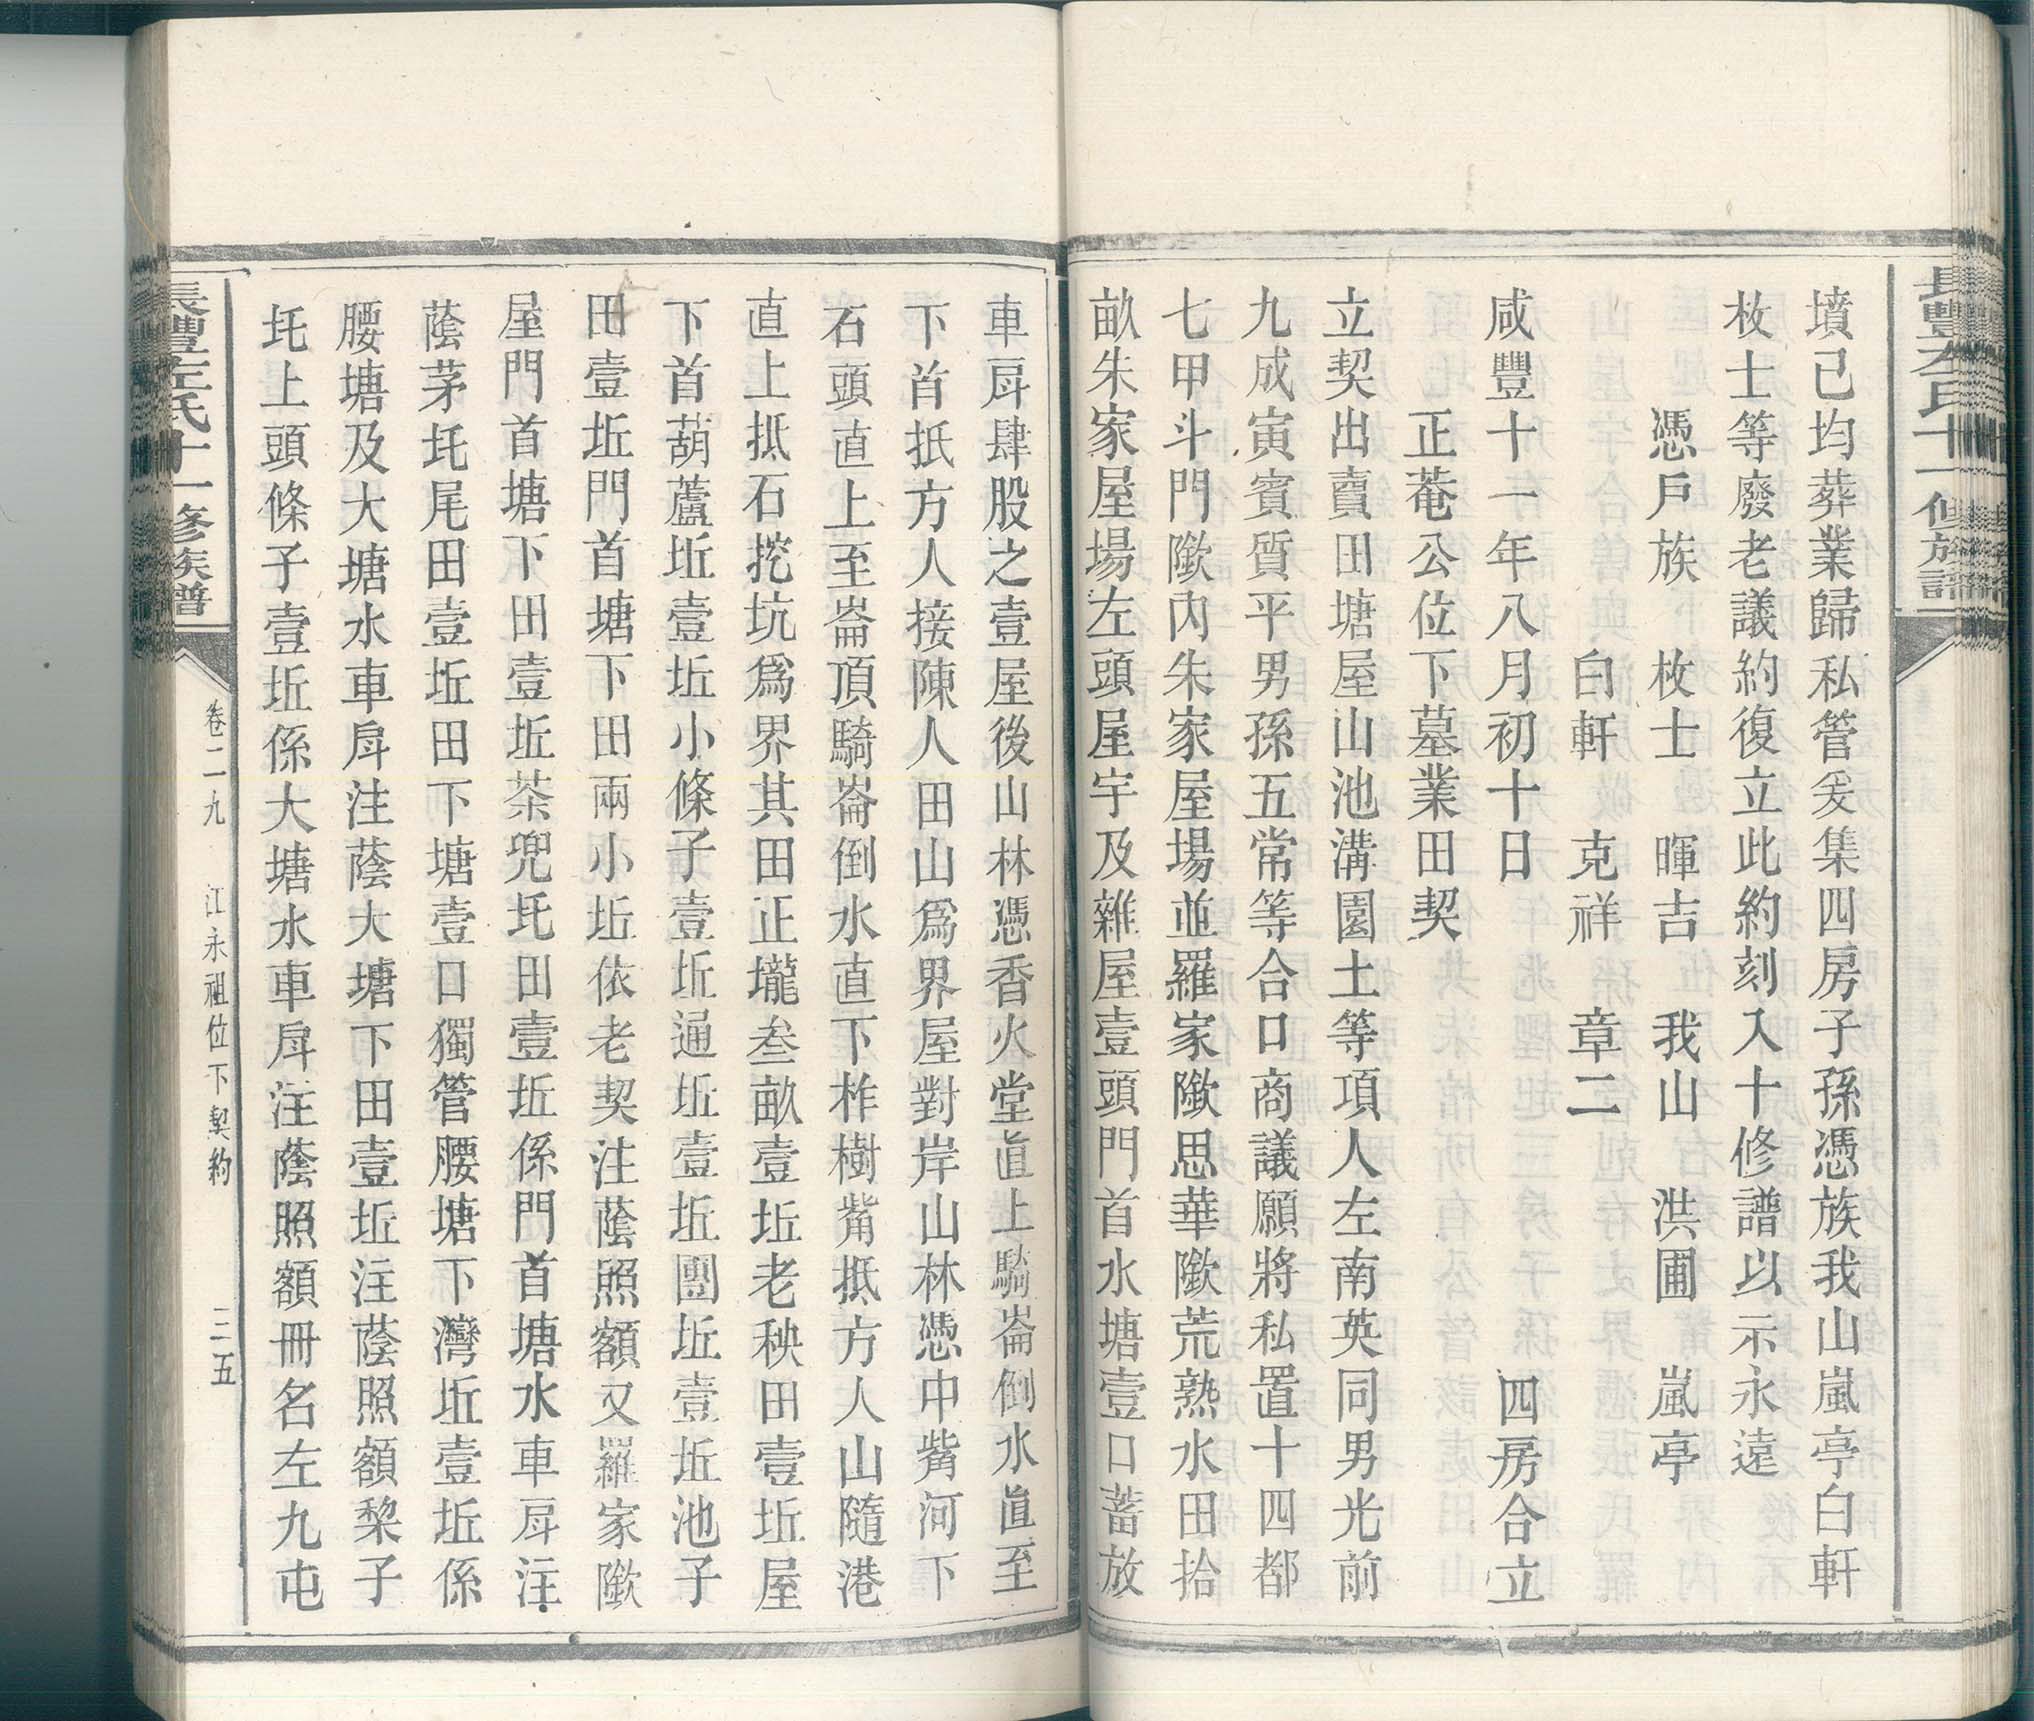 長豐左氏十一修族譜
墳己均葬業歸私管爰集四房子孫憑族我山嵐亭白軒
枚士等廢老議約復立此約刻入十修譜以示永遠
憑戶族　枚士　暉吉　我山　洪圃　嵐亭
白軒　克祥　章二
咸豐十一年八月初十日　四房合立
正菴公位下墓業田契
立契出賣田塘屋山池溝園土等項人左南英同男光前
九成寅賓質平男孫五常等合口商議願將私置十四都
七甲斗門隞內朱家屋場並羅家隞思華隞荒熟水田拾
畝朱家屋場左頭屋宇及雜屋壹頭門首水塘壹口蓄放
車戽肆股之壹屋後山林憑香火堂直上騎崙倒水直至
下首抵方人接陳人田山爲界屋對岸山林憑中觜河下
石頭直上至崙頂騎崙倒水直下柞樹觜抵方人山隨港
直上抵石挖坑爲界其田正壠叁畝壹坵老秧田壹坵屋
下首葫蘆坵壹坵小條子壹坵通坵壹坵團坵壹坵池子
田壹坵門首塘下田兩小坵依老契注蔭照額又羅家隞
屋門首塘下田壹坵茶兜圫田壹坵係門首塘水車戽注
蔭茅圫尾田壹坵田下塘壹口獨管腰塘下灣坵壹坵係
腰塘及大塘水車戽注蔭大塘下田壹坵注蔭照額棃子
圫上頭條子壹坵係大塘水車戽注蔭照額冊名左九屯
長豐左氏十一修族譜
卷二九　江永祖位下契約　三五